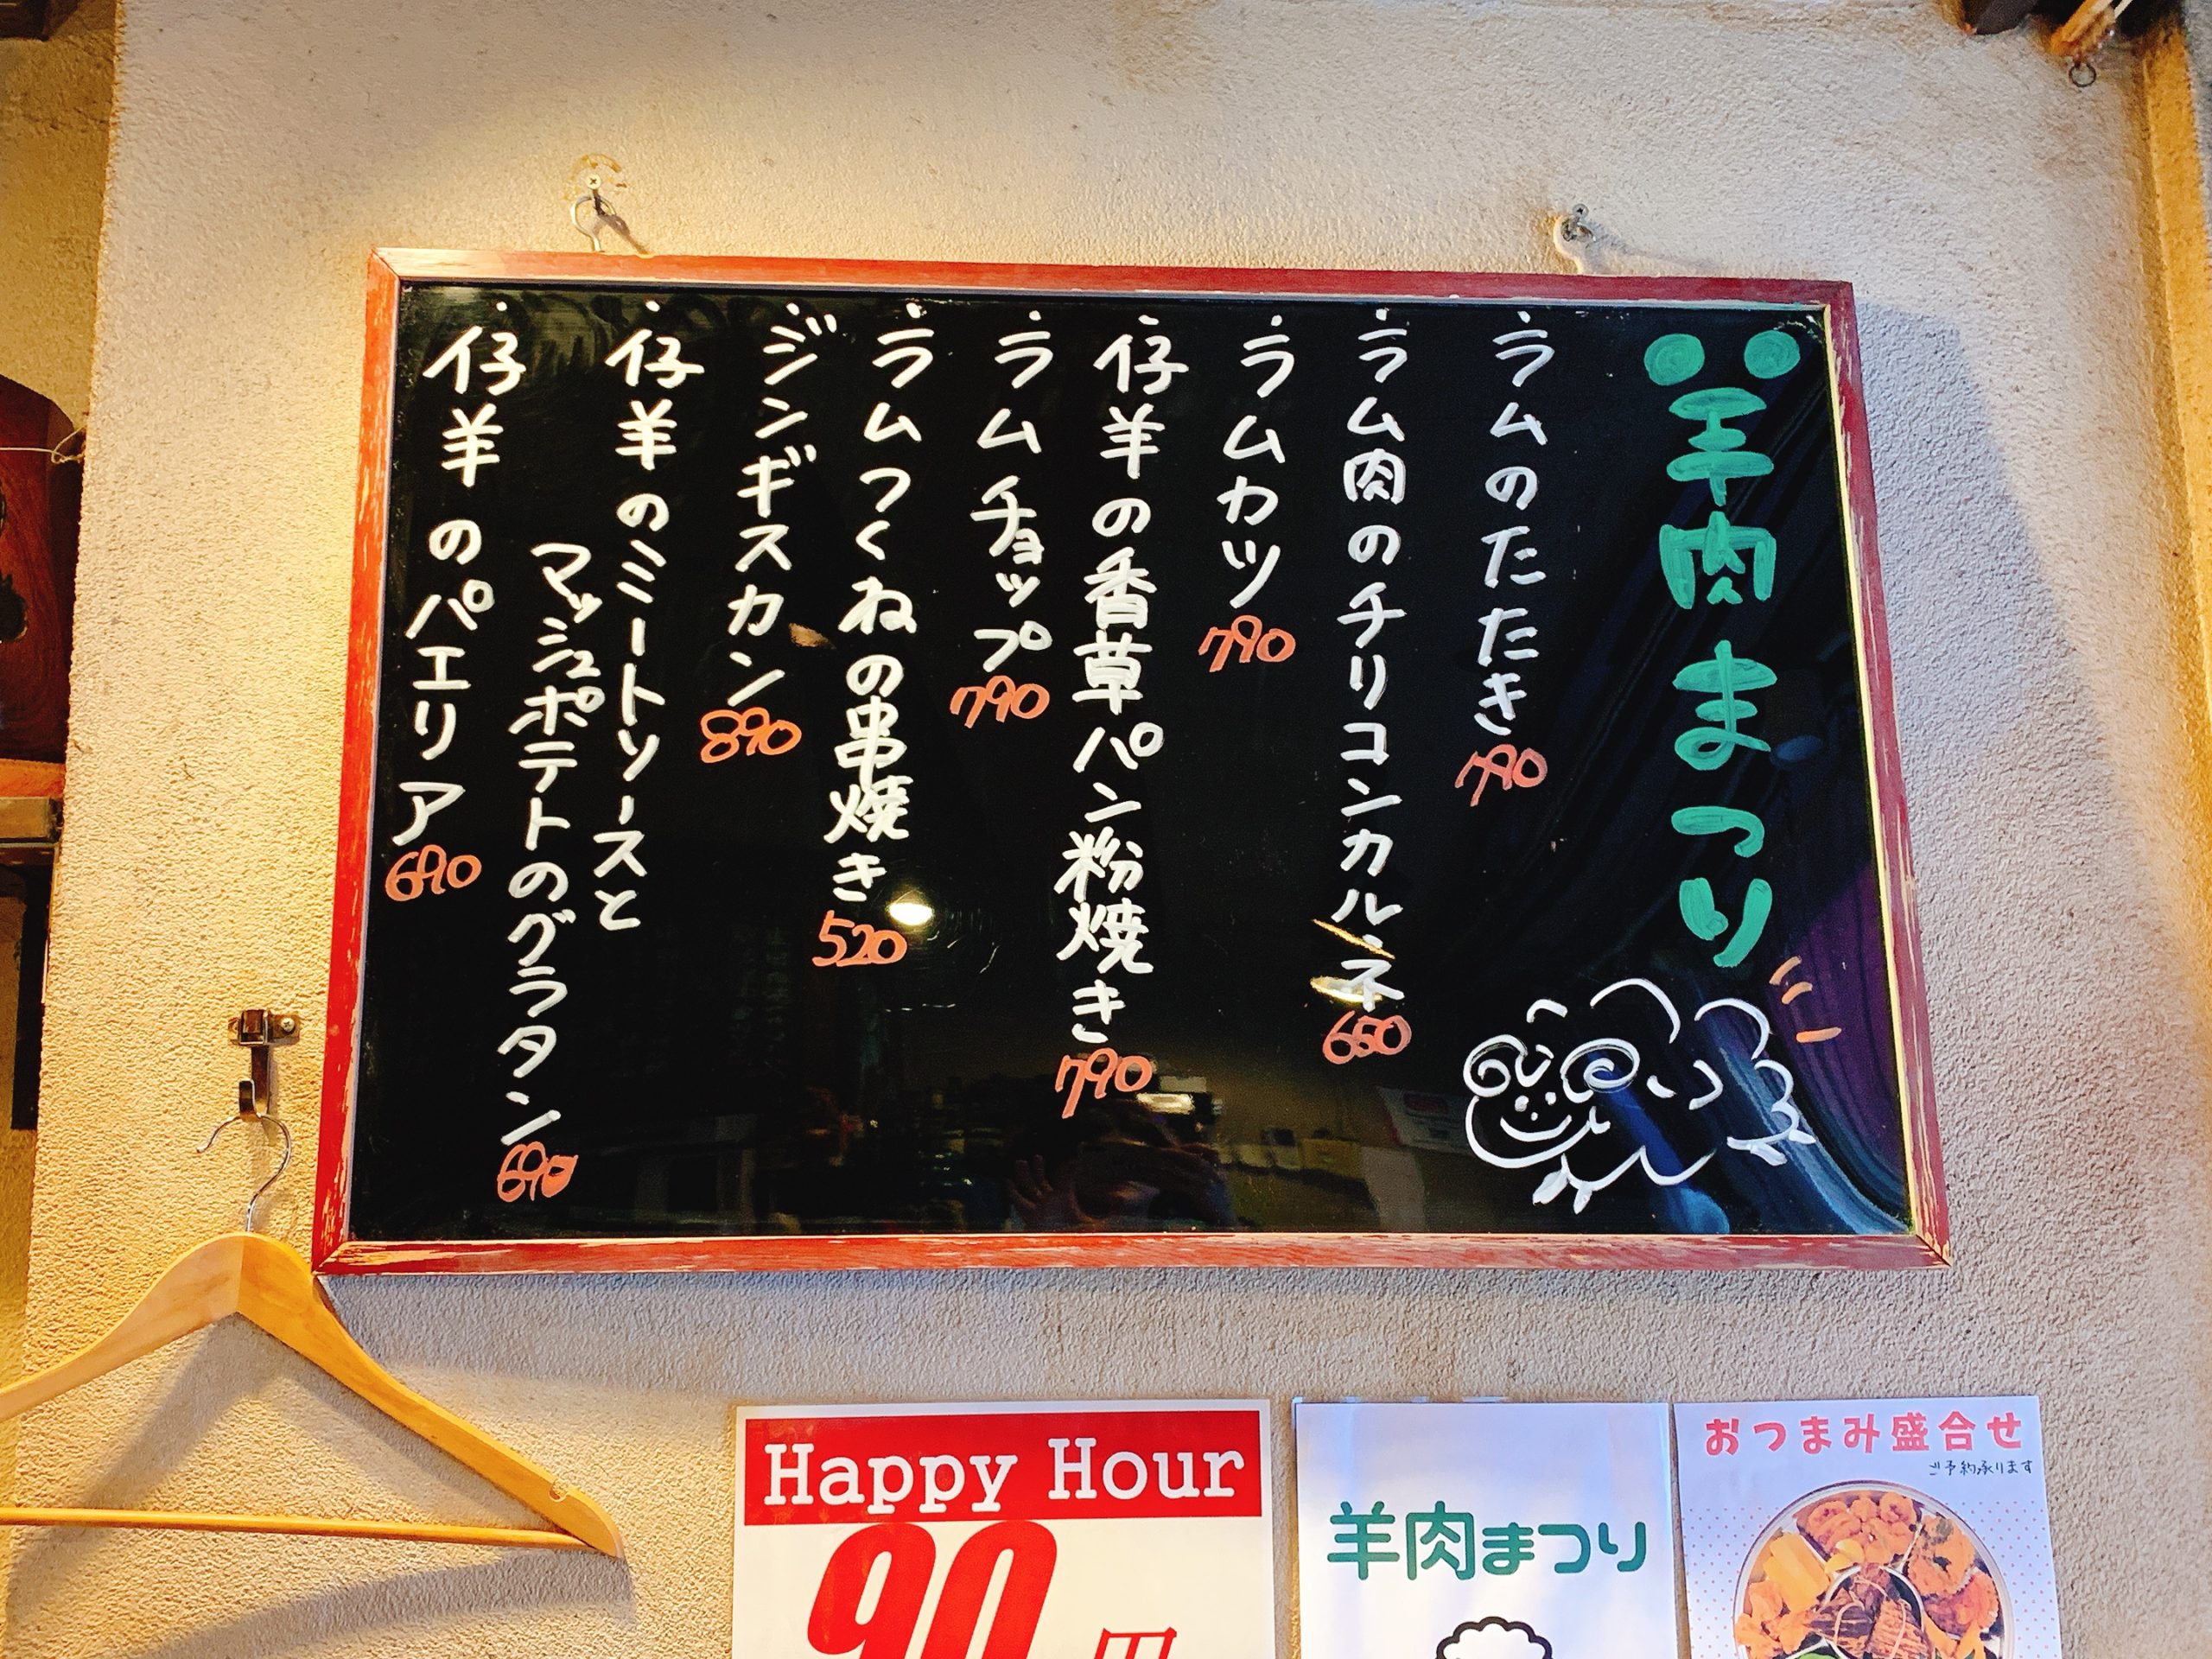 羊肉まつり
・ラムのたたき 790
・ラム肉のチリコンカルネ 650
・ラムカツ 790
・仔羊の香草パン粉焼き 790
・ラムチョップ 790
・ラムつくねの串焼き 520
・ジンギスカン 890
・仔羊のミートソースと
マッシュポテトのグラタン 690
・仔羊のパエリア 690
Happy Hour
90円
羊肉まつり
おつまみ盛合せ
ご予約承ります